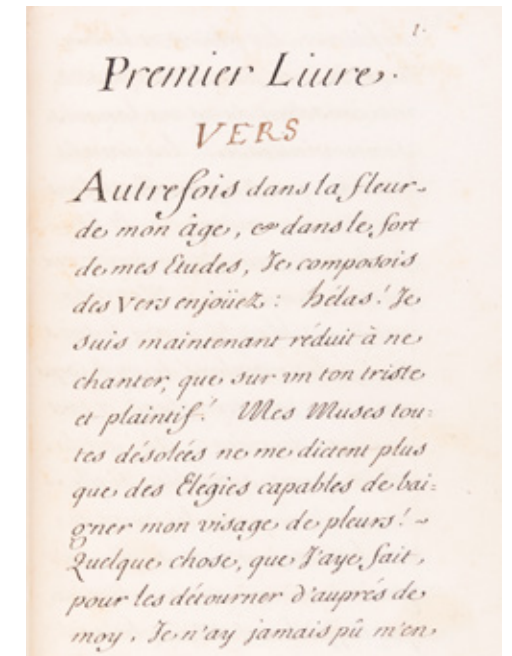 1.
Premier Liure.
VERS
Autrefois dans la fleur
de mon âge, & dans le fort
de mes Etudes, Je composois
des Vers enjoüez : hélas! Je
suis maintenant réduit à ne
chanter, que sur un ton triste
et plaintif! Mes Muses tou=
tes désolées ne me dictent plus
que des Elégies capables de bai=
gner mon visage de pleurs! ~
Quelque chose, que J'aye fait,
pour les détourner d'auprés de
moy, Je n'ay jamais pû m'en